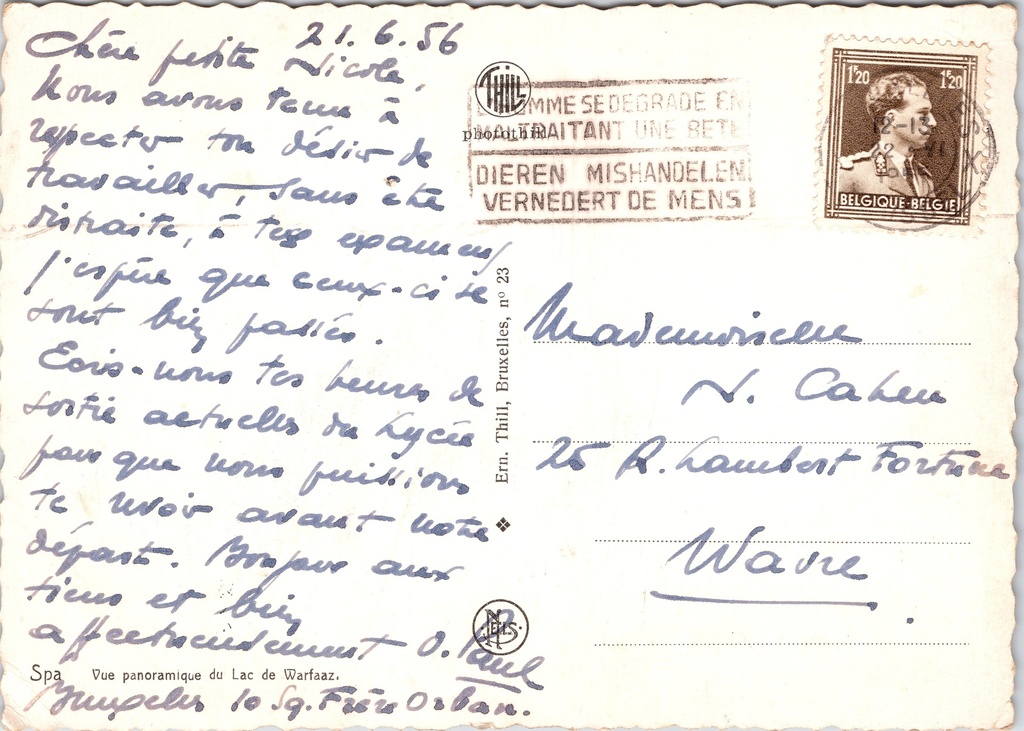 21.6.56
Chère petite Nicole,
Nous avons tenu à
respecter ton désir de
travailler, sans être
distraite, à tes examens,
j'espère que ceux-ci se
sont bien passés.
Ecris-nous tes heures de
sortie actuelles du Lycée
pour que nous puissions
te revoir avant notre
départ. Bonjour aux
tiens et bien
affectueusement O. Paul
Spa Vue panoramique du Lac de Warfaaz.
Bruxelles 10 Sq. Frère Orban.
THILL
photothill
Ern. Thill, Bruxelles, nº 23
NELS
HOMME SE DEGRADE EN
MALTRAITANT UNE BETE
DIEREN MISHANDELEN
VERNEDERT DE MENS
1F20 1F20
BELGIQUE-BELGIË
Mademoiselle
N. Cahen
25 R. Lambert Fortune
Wavre